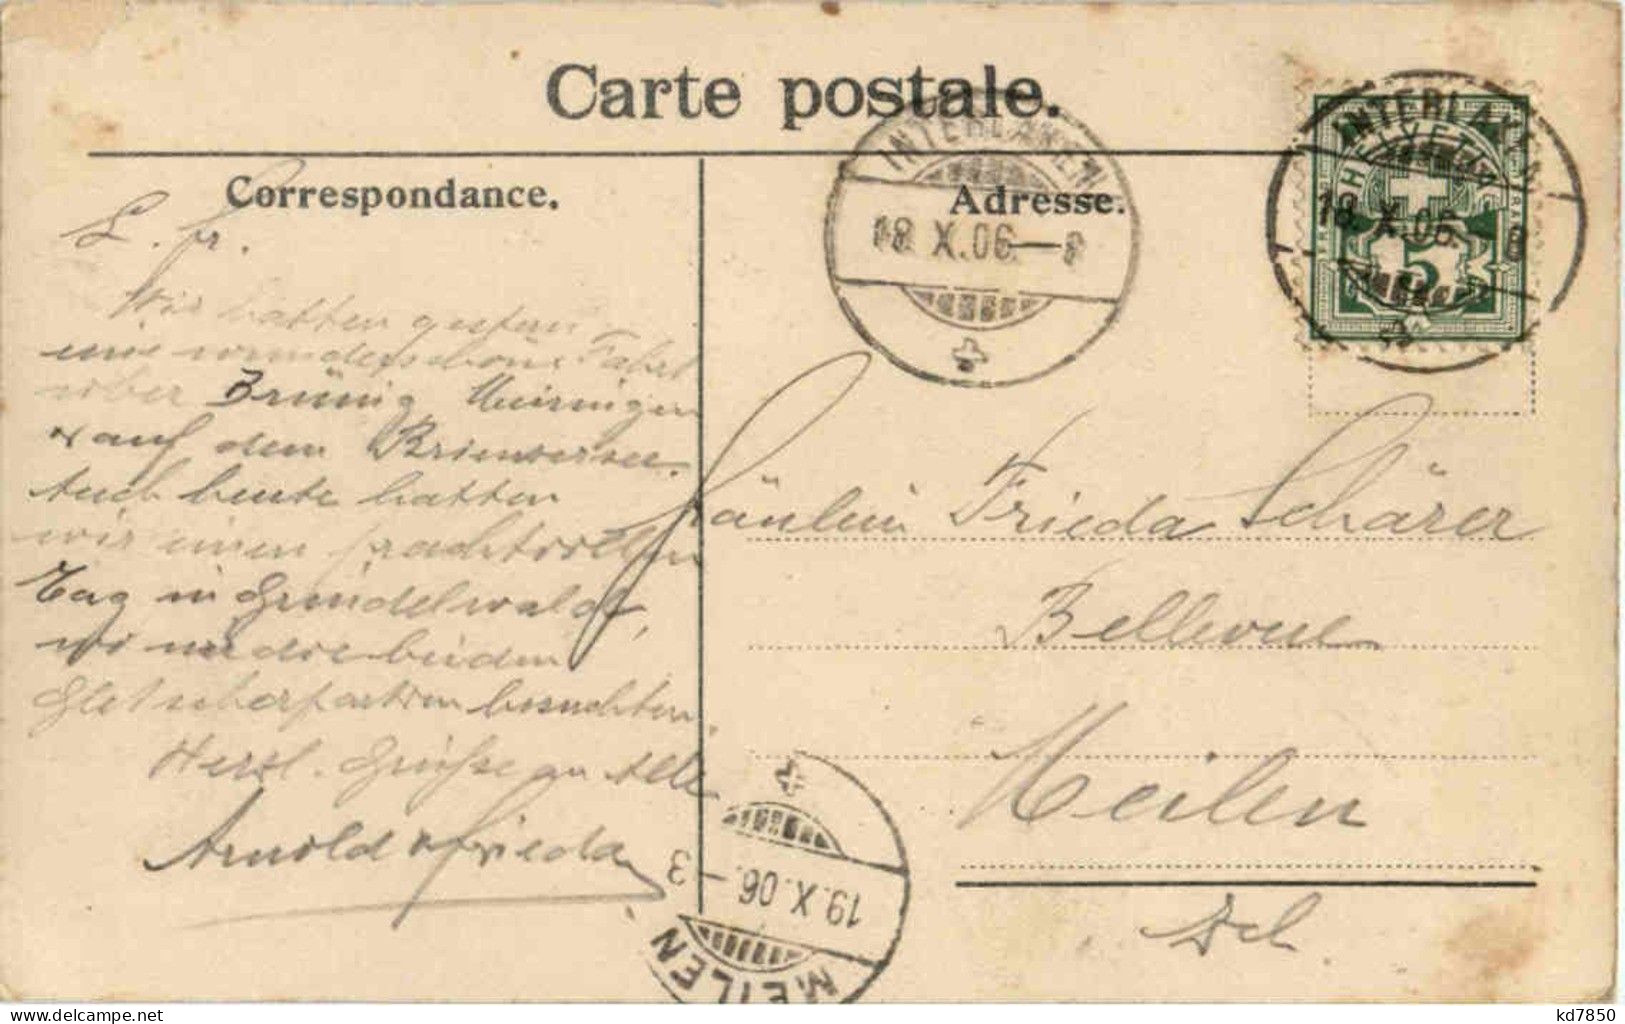 Carte postale.
Correspondance.
Adresse.
INTERLAKEN
18.X.06.—8
INTERLAKEN
18.X.06.—8
HELVETIA
5
L. Fr.
Wir hatten gestern
eine wunderschöne Fahrt
über Brünig Meiringen
& auf dem Brienzersee.
Auch heute hatten
wir einen prachtvollen
Tag in Grindelwald,
wo wir die beiden
Gletscherpartien besuchten.
Herzl. Grüsse an Alle
Arnold & Frieda
Fräulein Frieda Schärer
Bellevue
Meilen
MEILEN
19.X.06.—3
delcampe.net
kd7850